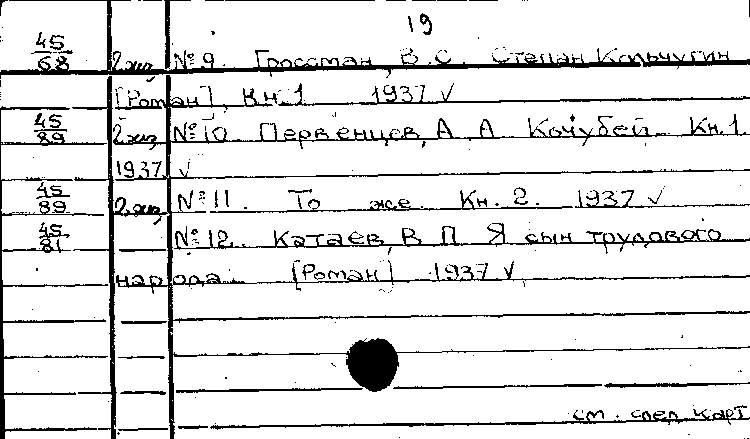 19
45/68 2 экз. №9. Гроссман, В.С. Степан Кольчугин
[Роман], Кн.1 1937 √
45/89 2 экз. №10 Первенцев, А. А. Кочубей. Кн.1
1937. √
45/89 2 экз. №11. То же. Кн. 2. 1937 √
45/81 №12. Катаев, В П Я сын трудового
народа. [Роман] 1937 √
см. след. карт